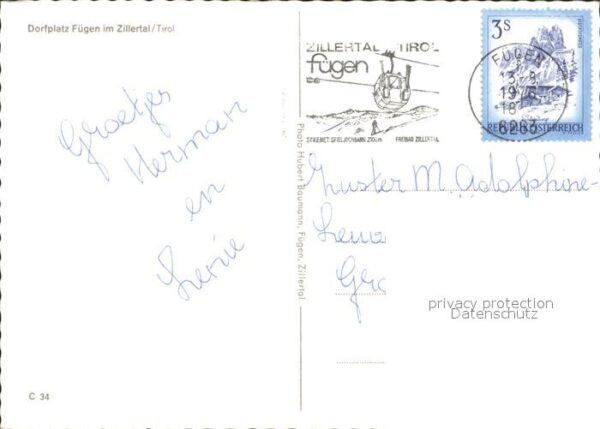 Dorfplatz Fügen im Zillertal/Tirol
Groetjes
Herman
en
C 34
Photo Hubert Baumann, Fügen, Zillertal
ZILLERTAL TIROL
fügen
SKIGEBIET SPIELJOCHBAHN 2100m FREIBAD ZILLERTAL
3 S
FÜGEN
13.-8.
19
18
6263
REPUBLIK ÖSTERREICH
Zuster M. Adolphine-
Lena
Gro
privacy protection
Datenschutz